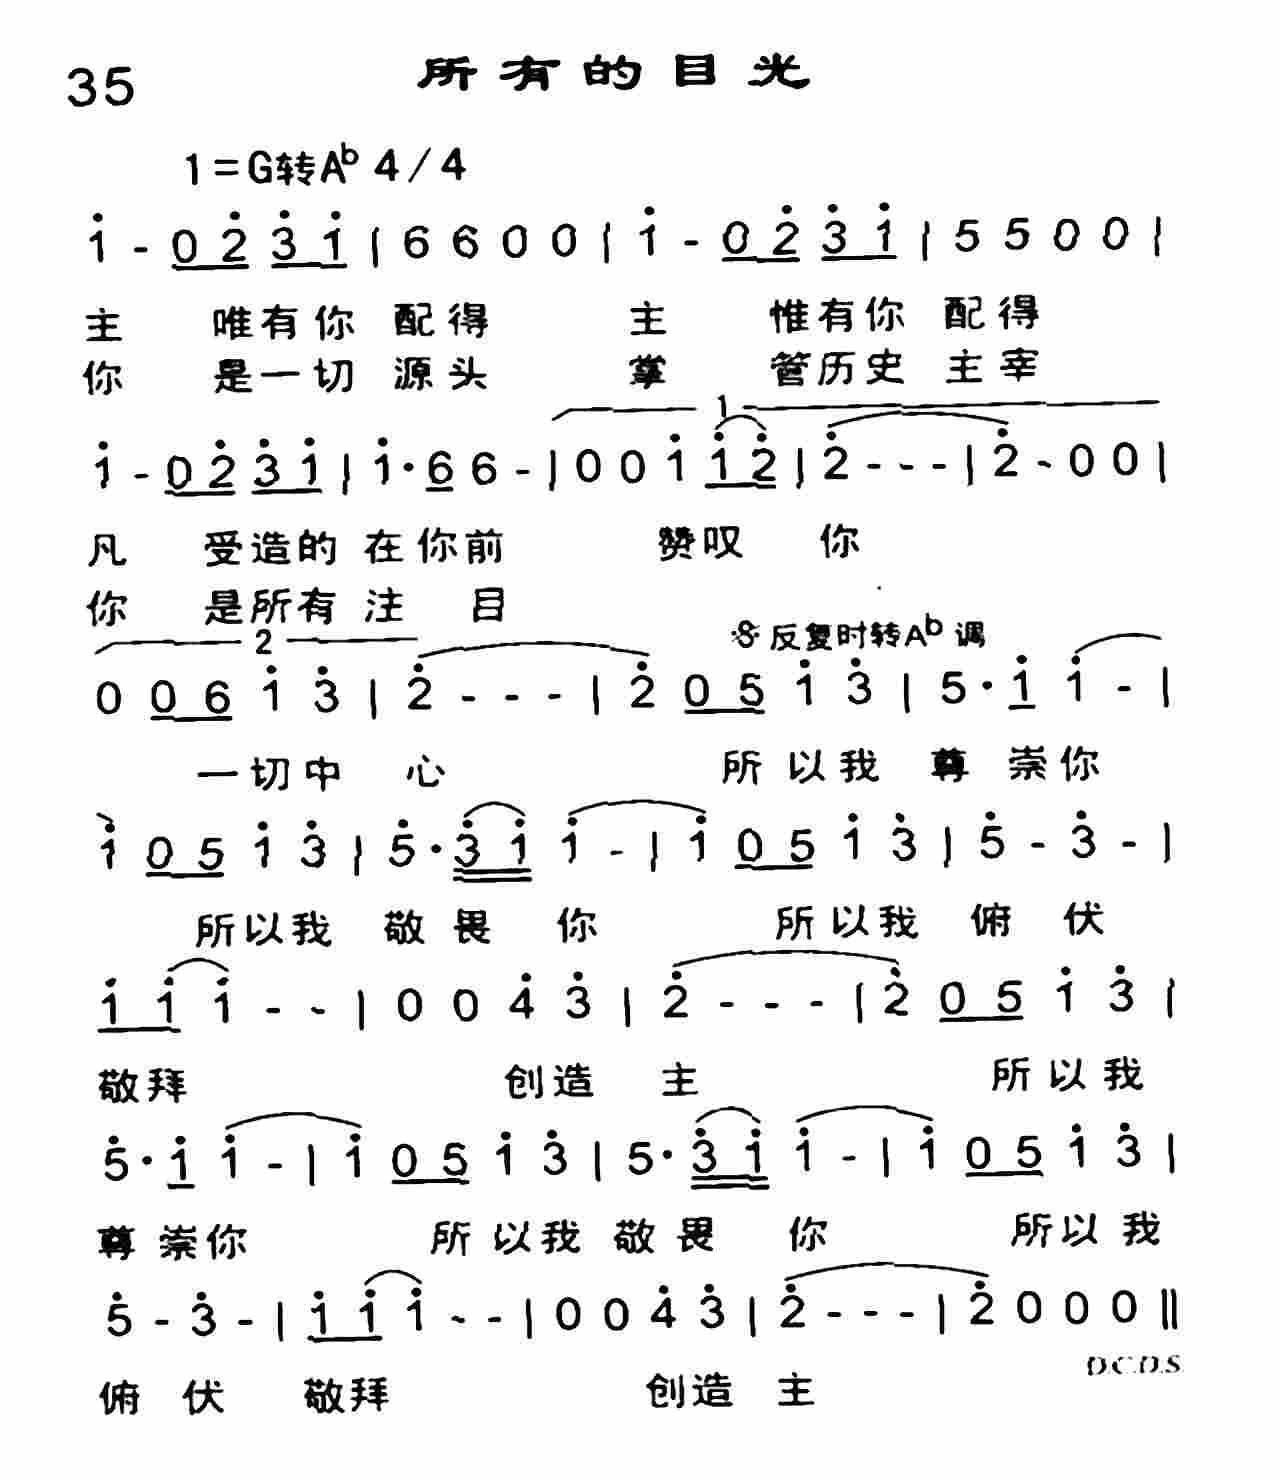 35 所有的目光
1=G转Aᵇ 4/4
1̇ - 0 2̇ 3̇ 1̇ | 6 6 0 0 | 1̇ - 0 2̇ 3̇ 1̇ | 5 5 0 0 |
主 唯有你 配得 主 惟有你 配得
你 是一切 源头 掌 管历史 主宰
1
1̇ - 0 2̇ 3̇ 1̇ | 1̇· 6 6 - | 0 0 1̇ 1̇ 2̇ | 2̇ - - - | 2̇ - 0 0 |
凡 受造的 在你前 赞叹 你
你 是所有 注 目
2 𝄋 反复时转Aᵇ 调
0 0 6 1̇ 3̇ | 2̇ - - - | 2̇ 0 5 1̇ 3̇ | 5· 1̇ 1̇ - |
一切中 心 所以我 尊 崇你
1̇ 0 5 1̇ 3̇ | 5̇· 3̇ 1̇ 1̇ - | 1̇ 0 5 1̇ 3̇ | 5̇ - 3̇ - |
所以我 敬畏 你 所以我 俯 伏
1̇ 1̇ 1̇ - - | 0 0 4̇ 3̇ | 2̇ - - - | 2̇ 0 5 1̇ 3̇ |
敬拜 创造 主 所以我
5̇· 1̇ 1̇ - | 1̇ 0 5 1̇ 3̇ | 5· 3̇ 1̇ 1̇ - | 1̇ 0 5 1̇ 3̇ |
尊 崇你 所以我 敬畏 你 所以我
5̇ - 3̇ - | 1̇ 1̇ 1̇ - - | 0 0 4̇ 3̇ | 2̇ - - - | 2̇ 0 0 0 ‖
D.C.D.S
俯 伏 敬拜 创造 主